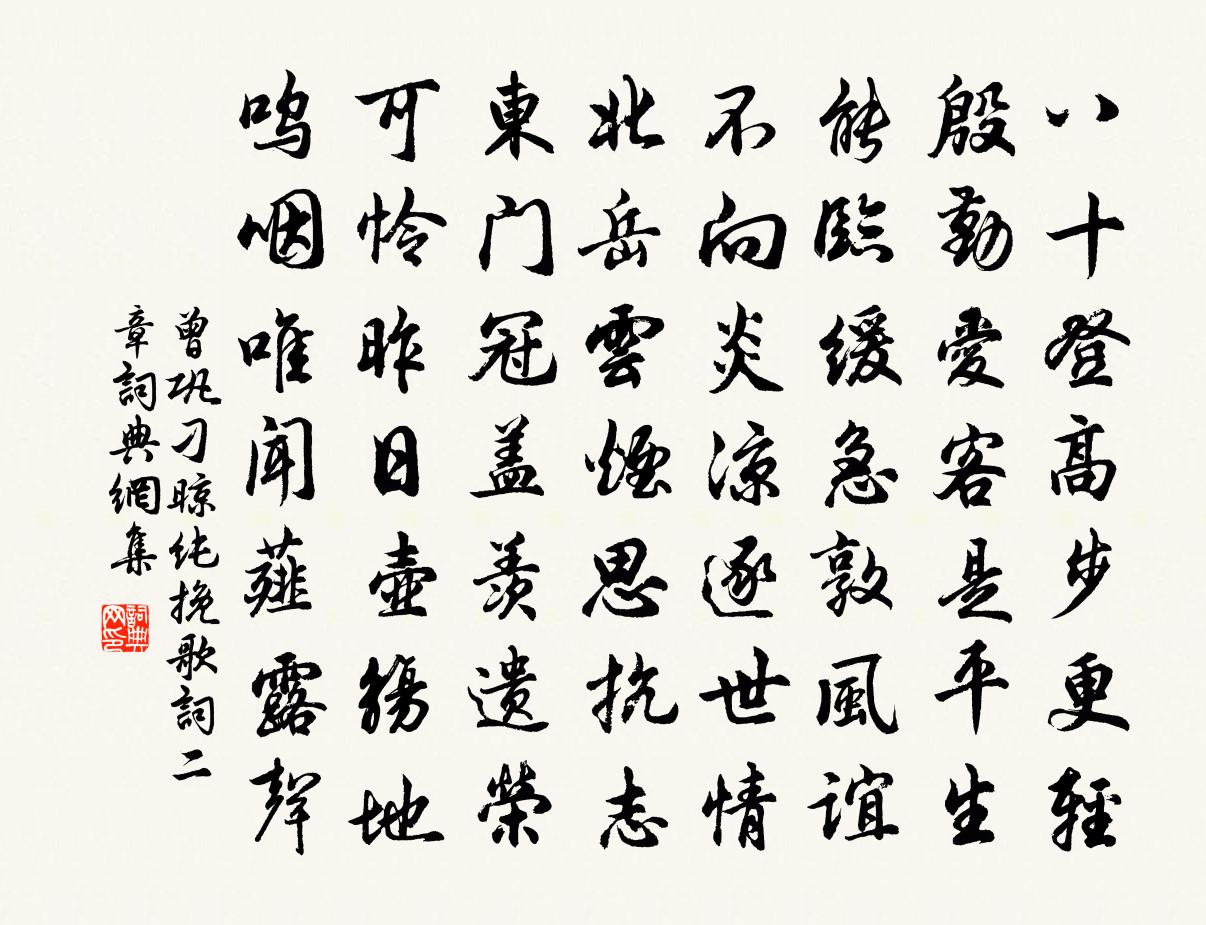 八十登高步更輕
殷勤愛客是平生
能臨緩急敦風誼
不向炎涼逐世情
北岳雲煙思抗志
東门冠盖羡遗榮
可怜昨日壺觴地
鸣咽唯闻薤露聲
曾巩刁晾纯挽歌詞二
章詞典網集
詞典网印